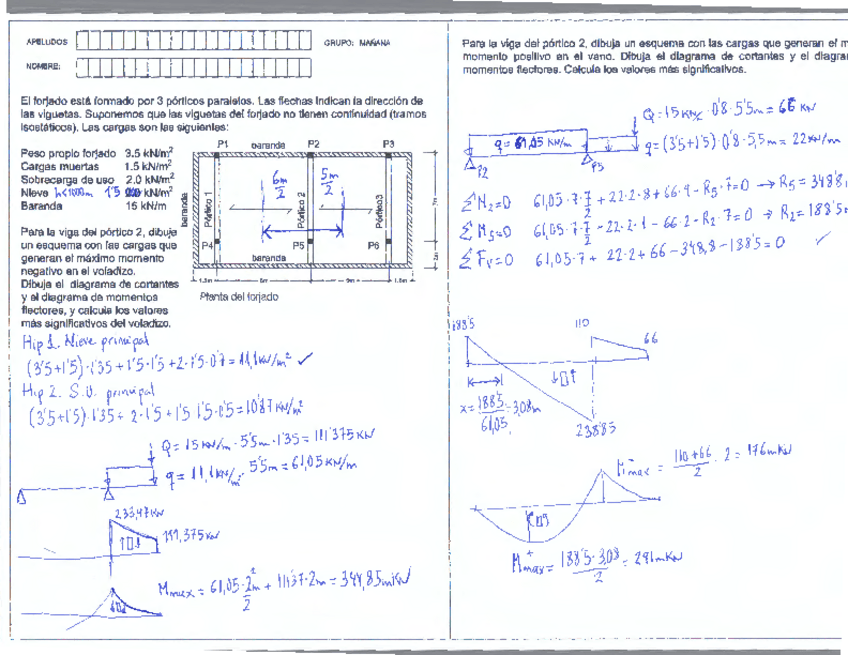 APELLIDOS
GRUPO: MAÑANA
NOMBRE:
El forjado está formado por 3 pórticos paralelos. Las flechas indican la dirección de
las viguetas. Suponemos que las viguetas del forjado no tienen continuidad (tramos
isostáticos). Las cargas son las siguientes:
Peso propio forjado 3.5 kN/m²
Cargas muertas 1.5 kN/m²
Sobrecarga de uso 2.0 kN/m²
Nieve h<1000m 1'5 kN/m²
Baranda 15 kN/m
P1 baranda P2 P3
6m/2 5m/2
baranda
Pórtico 1
Pórtico 2
Pórtico 3
P4 P5 P6
baranda
Planta del forjado
Para la viga del pórtico 2, dibuje
un esquema con las cargas que
generan el máximo momento
negativo en el voladizo.
Dibuja el diagrama de cortantes
y el diagrama de momentos
flectores, y calcula los valores
más significativos del voladizo.
Hip 1. Nieve principal
(3'5+1'5)·1'35+1'5·1'5+2·1'5·0'7=11,1 kN/m² ✓
Hip 2. S.U. principal
(3'5+1'5)·1'35+2·1'5+1'5·1'5·0'5=10'87 kN/m²
Q=15 kN/m·5'5m·1'35=111'375 kN
q=11,1 kN/m²·5'5m=61,05 kN/m
233,47 kN
111,375 kN
Mmax = 61,05·2²m/2 + 111'37·2m = 344,85 mkN
Para la viga del pórtico 2, dibuja un esquema con las cargas que generan el
momento positivo en el vano. Dibuja el diagrama de cortantes y el
momentos flectores. Calcula los valores más significativos.
Q=15 kN/m·0'8·5'5m=66 kN
q=61,05 kN/m
q=(3'5+1'5)·0'8·5,5m=22 kN/m
P2 P5
ΣM2=0 61,05·7·7/2+22·2·8+66·9-R5·7=0 → R5=348'8
ΣM5=0 61,05·7·7/2-22·2·1-66·2-R2·7=0 → R2=188'5
ΣFv=0 61,05·7+22·2+66-348,8-188'5=0 ✓
188'5
110
66
x=188'5/61,05=3,08m
238'85
M⁻max = 110+66/2·2=176mkN
M⁺max = 188'5·3,08/2 = 291mkN